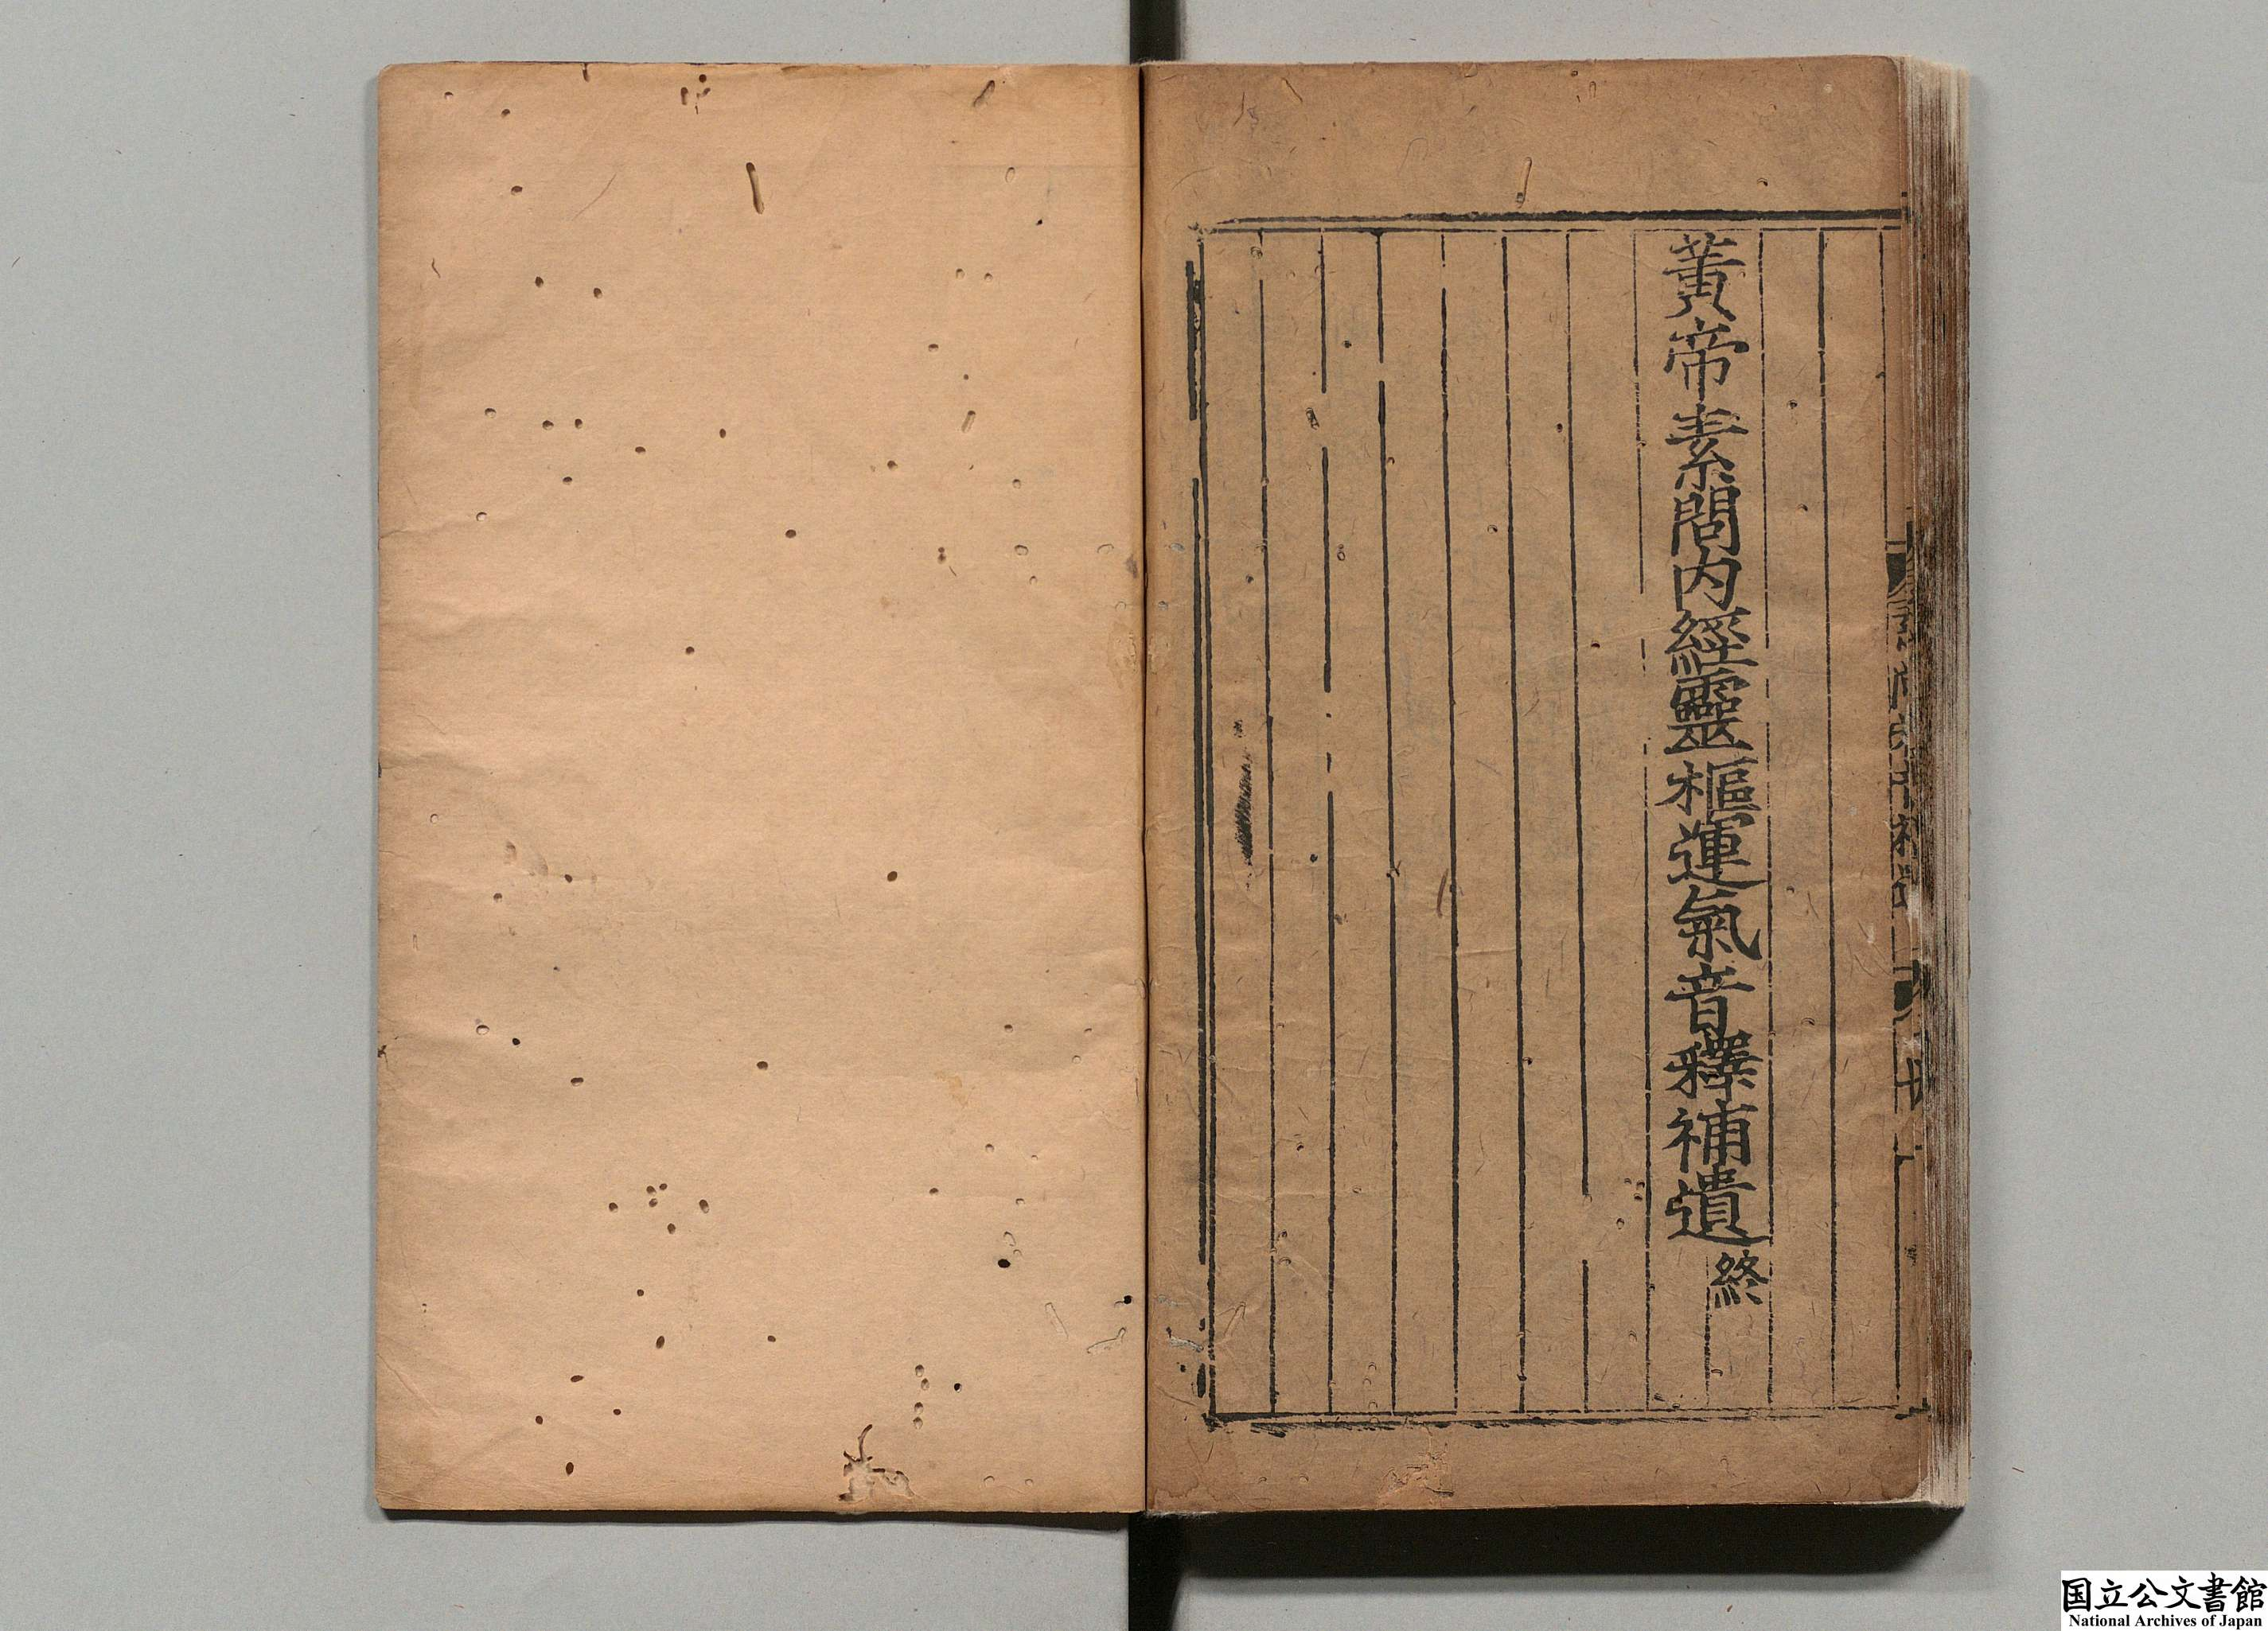 黃帝素問内經靈樞運氣音釋補遺終
国立公文書館
National Archives of Japan